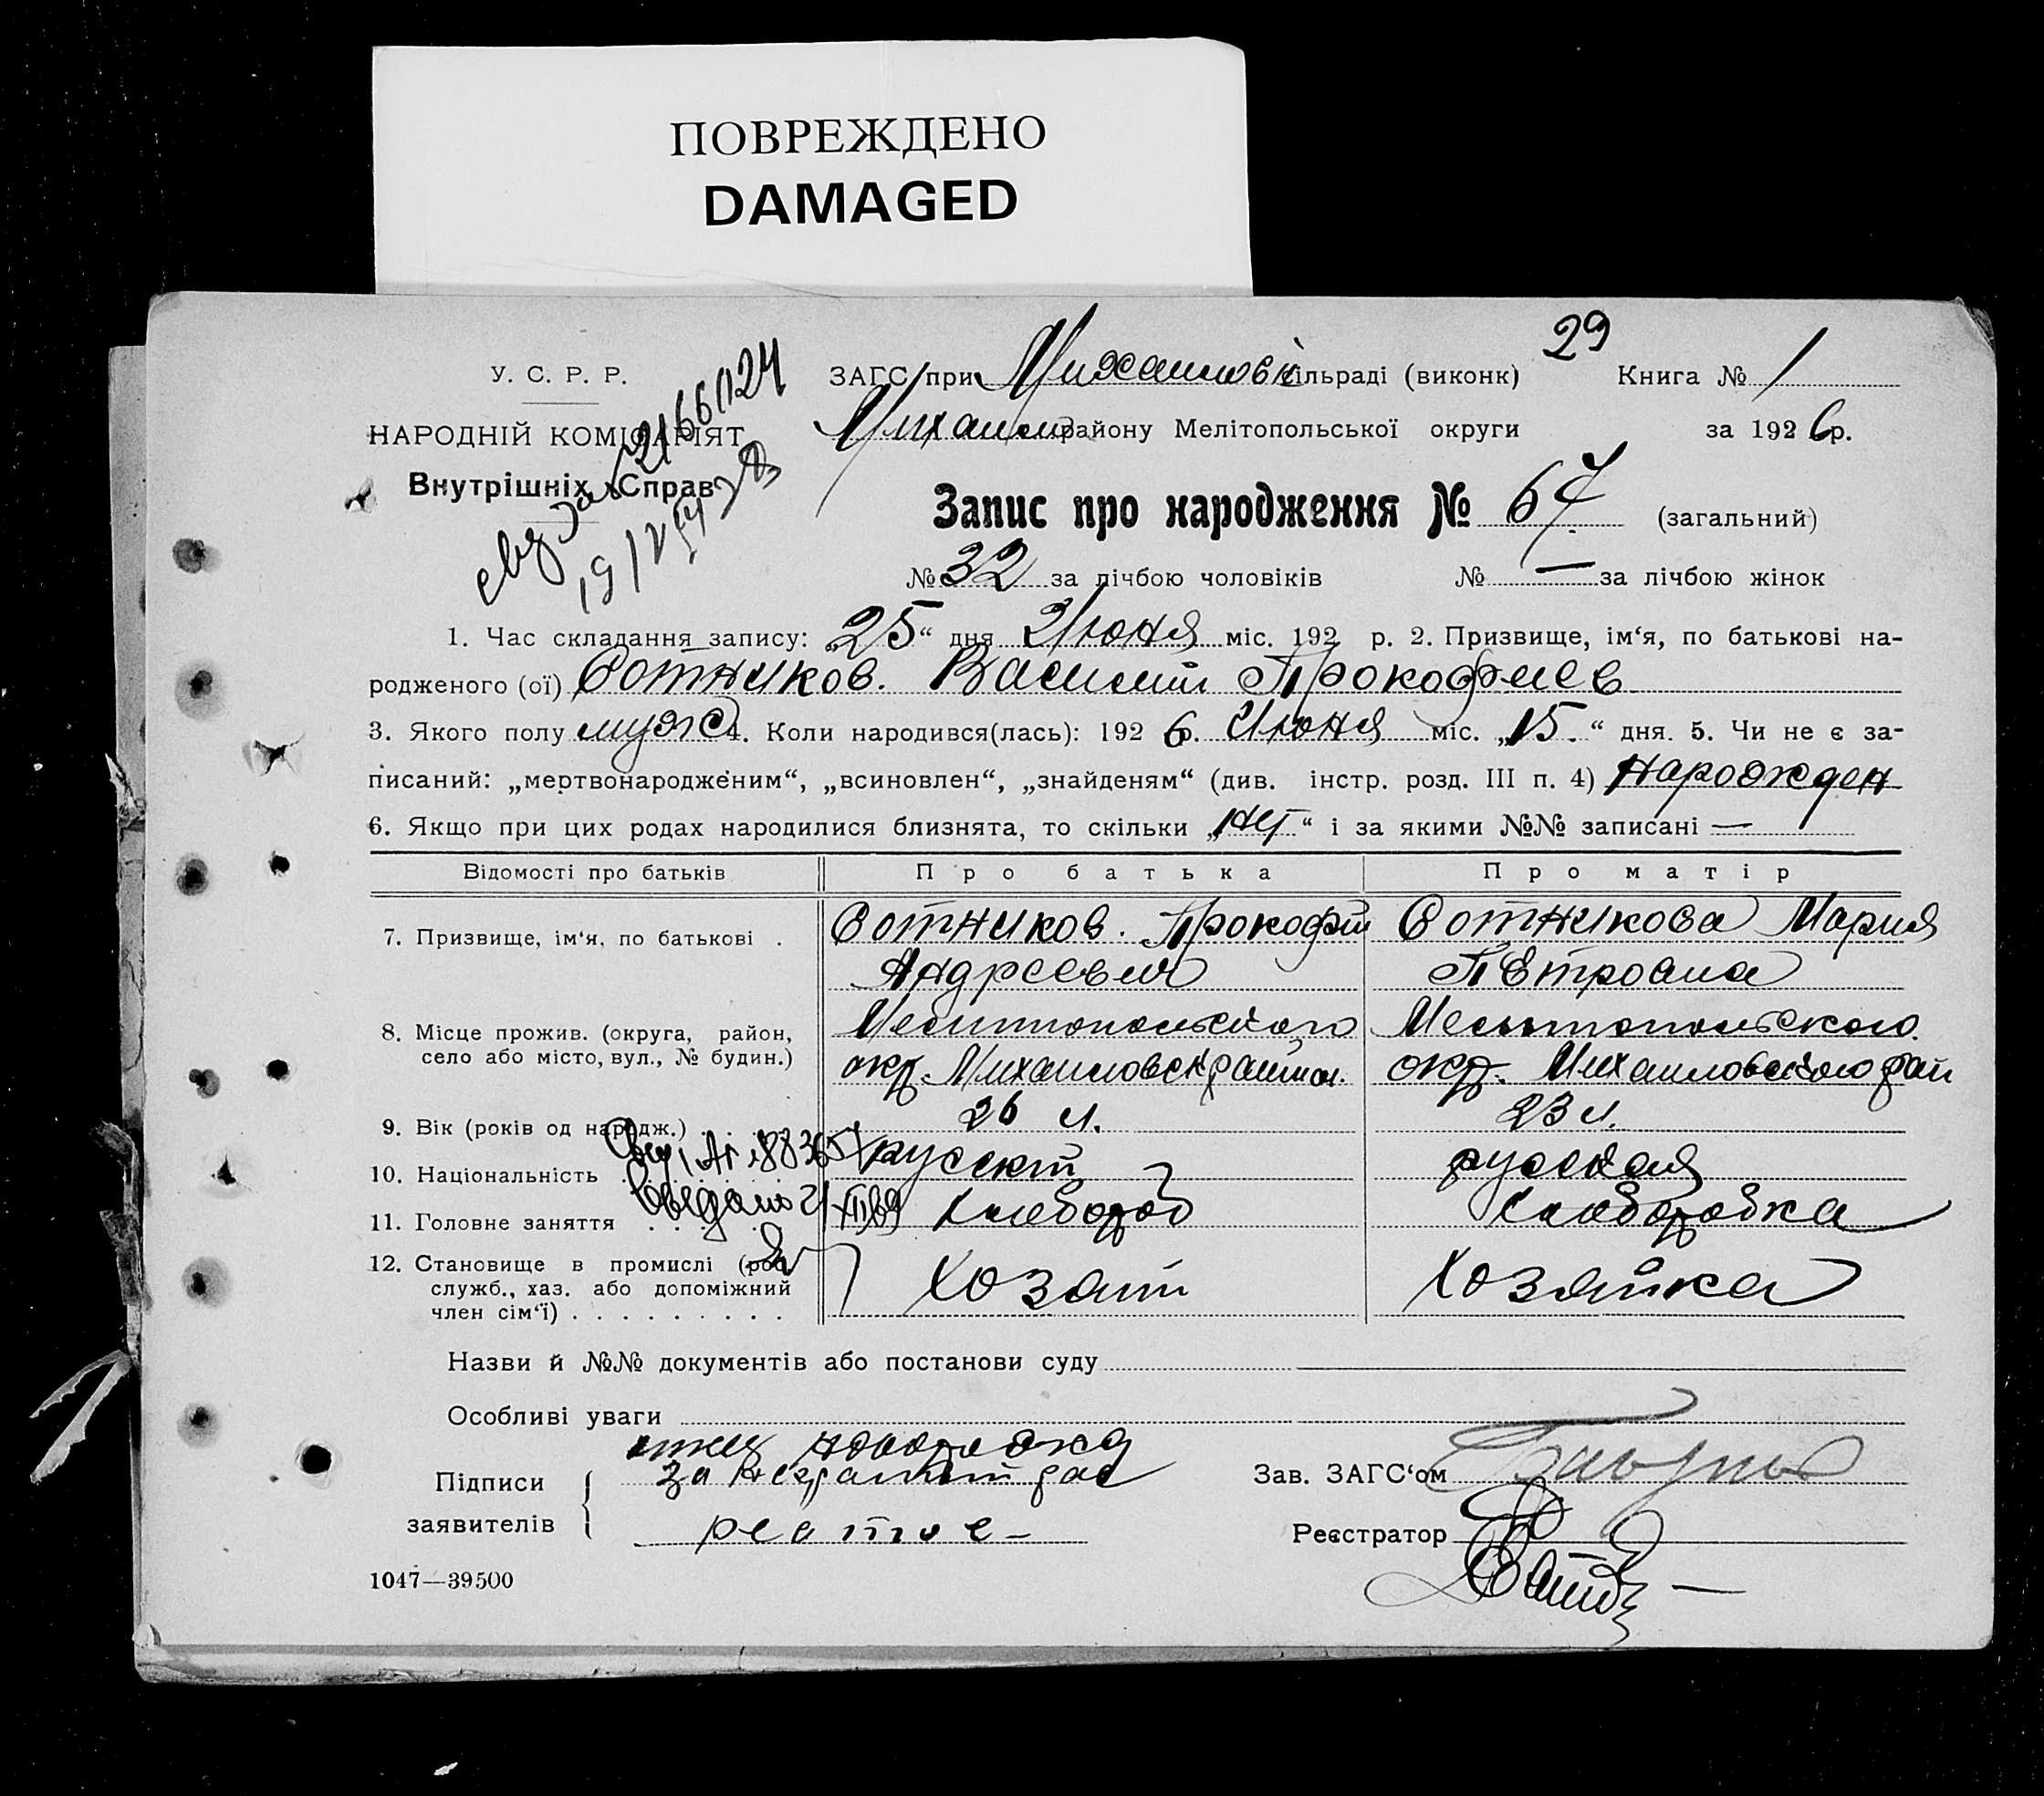 ПОВРЕЖДЕНО
DAMAGED
29
У. С. Р. Р.
ЗАГС при Михайловск сільраді (виконк) Книга № 1
НАРОДНІЙ КОМІСАРІЯТ
Михайлов району Мелітопольської округи за 1926 р.
Внутрішніх Справ
Запис про народження № 67 (загальний)
№ 32 за лічбою чоловіків № — за лічбою жінок
1. Час складання запису: „25“ дня Июня міс. 192 р. 2. Призвище, ім‘я, по батькові на-
родженого (ої) Сотников. Василий Прокофиев
3. Якого полу муж 4. Коли народився(лась): 1926 р. Июня міс. „15.“ дня. 5. Чи не є за-
писаний: „мертвонародженим“, „всиновлен“, „знайденям“ (див. інстр. розд. III п. 4) Нарожден
6. Якщо при цих родах народилися близнята, то скільки „нет“ і за якими №№ записані —
Відомості про батьків Про батька Про матір
7. Призвище, ім‘я, по батькові . Сотников. Прокофий Сотникова Мария
Андреевич Петровна
8. Місце прожив. (округа, район, Мелитопольского Мелитопольского
село або місто, вул., № будин.) окр. Михайловск района. окр. Михайловского рай
9. Вік (років од народж.) 26 л. 23 л.
10. Національність русский русская
11. Головне заняття хлебороб хлеборобка
12. Становище в промислі (роб.
служб., хаз. або допоміжний Хозяин Хозяйка
член сім‘ї) . . . . . . . . .
Назви й №№ документів або постанови суду
Особливі уваги
Підписи за неграмотн рас
Зав. ЗАГС‘ом
заявителів
Реєстратор
1047—39500